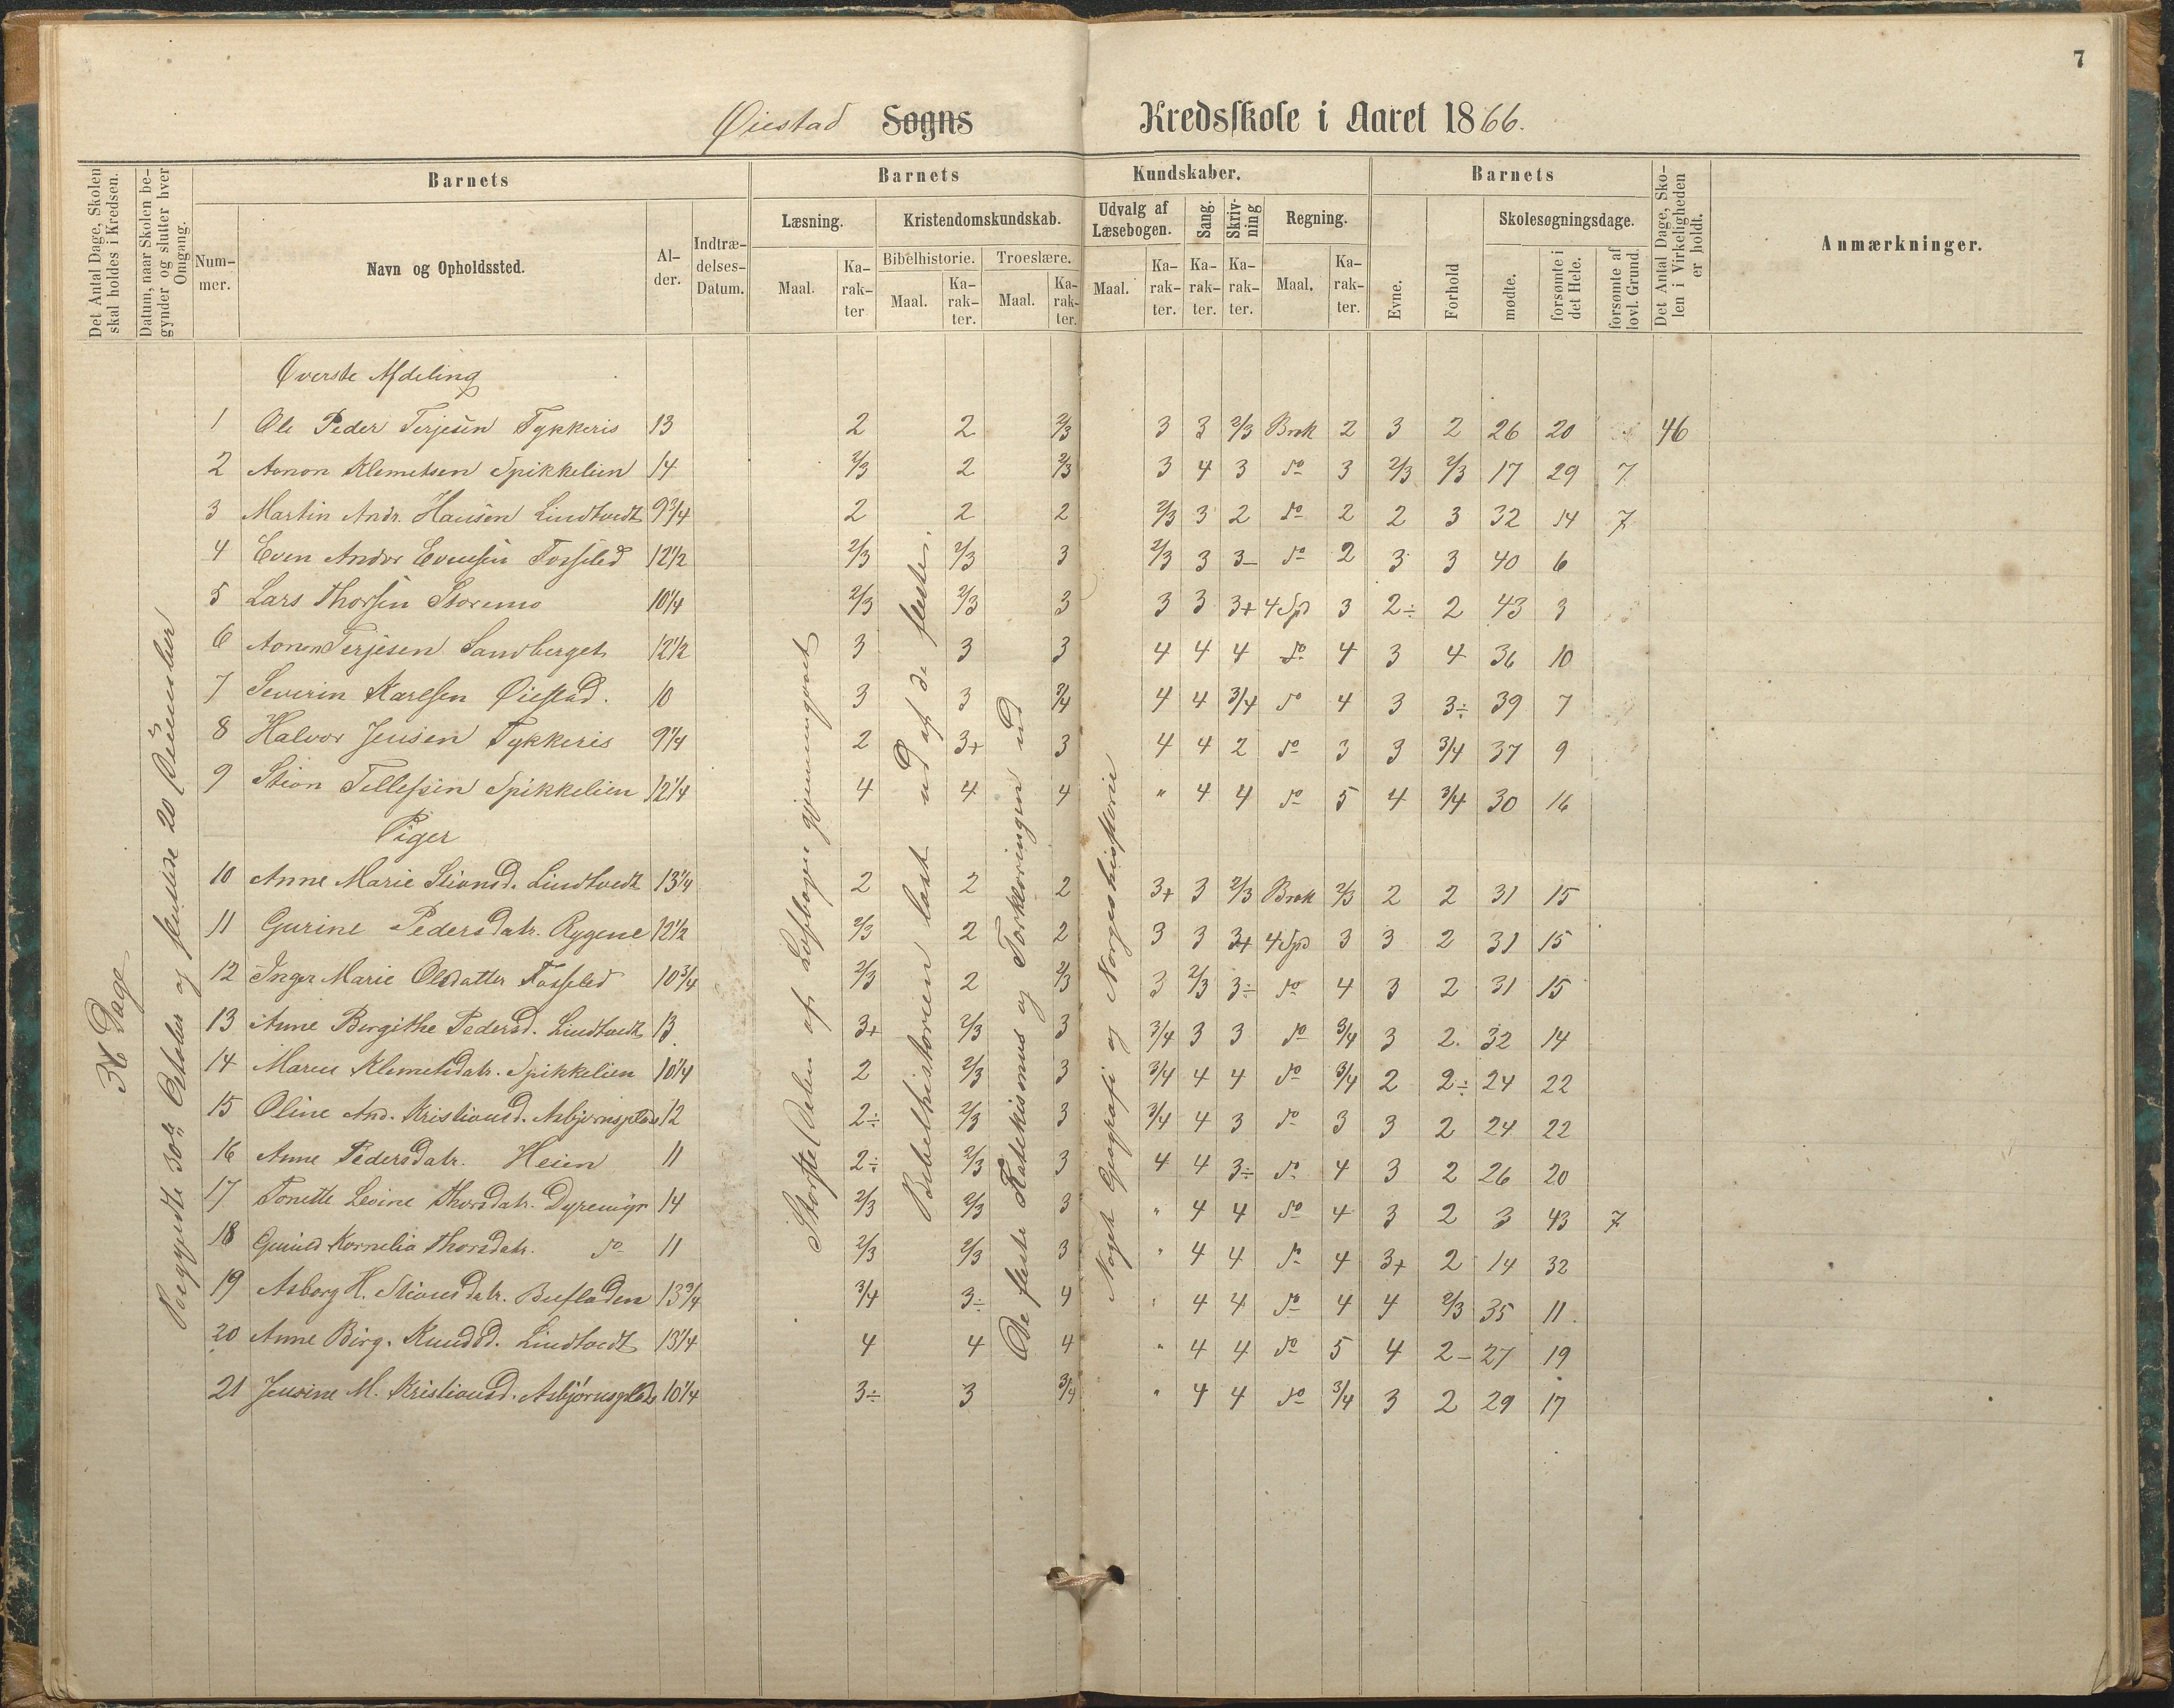 7
Øiestad Sogns Kredsskole i Aaret 1866.
Det Antal Dage, Skolen skal holdes i Kredsen.
Datum, naar Skolen begynder og slutter hver Omgang.
Barnets
Nummer.
Navn og Opholdssted.
Alder.
Indtrædelses-Datum.
Barnets Kundskaber.
Læsning.
Maal.
Karakter
Kristendomskundskab.
Bibelhistorie.
Maal.
Karakter.
Troeslære.
Maal.
Karakter.
Udvalg af Læsebogen.
Maal.
Karakter.
Sang.
Karakter.
Skrivning
Karakter.
Regning.
Maal.
Karakter.
Barnets
Evne.
Forhold
Skolesøgningsdage.
mødte.
forsømte i det Hele.
forsømte af lovl. Grund.
Det Antal Dage, Skolen i Virkeligheden er holdt.
Anmærkninger.
36 Dage
Største Delen af Læsebogen gjennemgaaet
Bibelhistorien læst ud af de fleste.
De fleste Katekismus og Forklaringen ud
Noget Geografi og Norgeshistorie
Øverste Afdeling
1 Ole Peder Terjesen Tykkeris 13 2 2 2/3 3 3 2/3 Brøk 2 3 2 26 20 46
2 Aanon Klemetsen Spikkelien 14 2/3 2 2/3 3 4 3 do 3 2/3 2/3 17 29 7
3 Martin Andr. Hansen Lindtvedt 9 3/4 2 2 2 2/3 3 2 do 2 2 3 32 14 7
4 Even Andor Evensen Fosseled 12 1/2 2/3 2/3 3 2/3 3 3- do 2 3 3 40 6
5 Lars Thorsen Storemo 10 1/4 2/3 2/3 3 3 3 3+ 4 Sp 3 2÷ 2 43 3
6 Aanon Terjesen Sandberget 12 1/2 3 3 3 4 4 4 do 4 3 4 36 10
7 Severin Karlsen Øiestad. 10 3 3 3/4 4 4 3/4 do 4 3 3÷ 39 7
8 Halvor Jensen Tykkeris 9 1/4 2 3+ 3 4 4 2 do 3 3 3/4 37 9
9 Stian Tellefsen Spikkelien 12 1/4 4 4 4 " 4 4 do 5 4 3/4 30 16
Piger
10 Anne Marie Stiansd. Lindtvedt 13 1/4 2 2 2 3+ 3 2/3 Brøk 2/3 2 2 31 15
11 Gurine Pedersdatr. Rygene 12 1/2 2/3 2 2 3 3 3+ 4 Sp 3 3 2 31 15
12 Inger Marie Olsdatter Fosseled 10 3/4 2/3 2 2/3 3 2/3 3÷ do 4 3 2 31 15
13 Anne Birgithe Pedersd. Lindtvedt 13 3+ 2/3 3 3/4 3 3 do 3/4 3 2. 32 14
14 Maren Klemetsdatr. Spikkelien 10 1/4 2 2/3 3 3/4 4 4 do 3/4 2 2÷ 24 22
15 Oline And. Kristiansd. Asbjørnsplads 12 2÷ 2/3 3 3/4 4 3 do 3 3 2 24 22
16 Anne Pedersdatr. Heien 11 2÷ 2/3 3 4 4 3÷ do 4 3 2 26 20
17 Tonette Levine Thorsdatr. Dyremyr 14 2/3 2/3 3 " 4 4 do 4 3 2 3 43 7
18 Gunild Kornelia Thorsdatr. do 11 2/3 2/3 3 " 4 4 do 4 3+ 2 14 32
19 Asborg H. Stiansdatr. 13 3/4 3/4 3÷ 4 " 4 4 do 4 4 2/3 35 11.
20 Anne Birg. Knudsd. Lindtvedt 13 1/4 4 4 4 " 4 4 do 5 4 2- 27 19
21 Jensine M. Kristiansd. Asbjørnsplads 10 1/4 3÷ 3 3/4 " 4 4 do 3/4 3 2 29 17